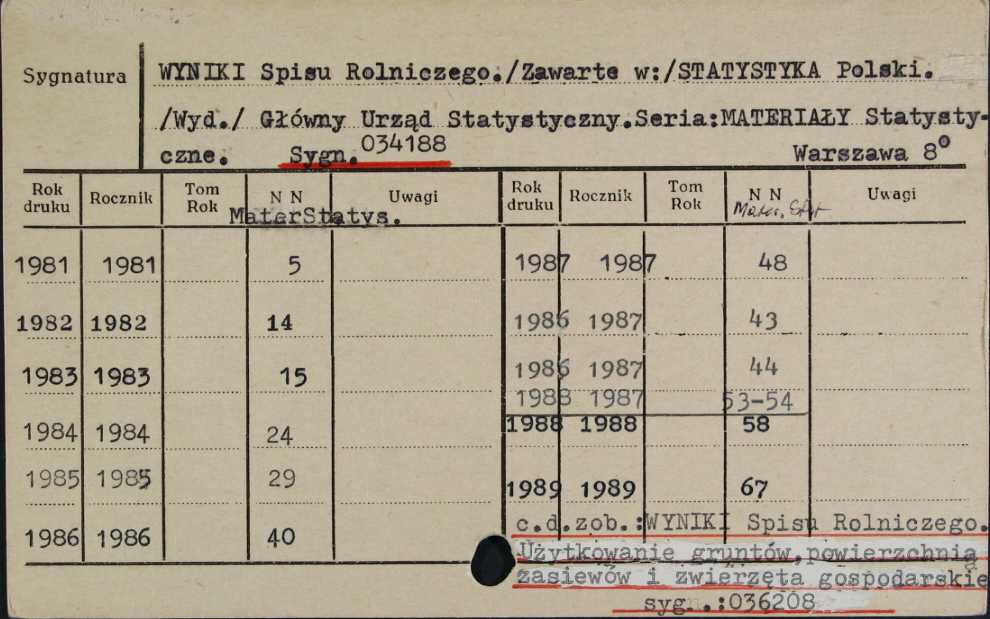 Sygnatura
WYNIKI Spisu Rolniczego./Zawarte w:/STATYSTYKA Polski.
/Wyd./ Główny Urząd Statystyczny.Seria:MATERIAŁY Statysty-
czne. Sygn.034188 Warszawa 8°
Rok druku Rocznik Tom Rok N N Uwagi Rok druku Rocznik Tom Rok N N Uwagi
MaterStatys. Mater. Stat
1981 1981 5 1987 1987 48
1982 1982 14 1986 1987 43
1983 1983 15 1986 1987 44
1988 1987 53-54
1984 1984 24 1988 1988 58
1985 1985 29 1989 1989 67
1986 1986 40
c.d.zob.:WYNIKI Spisu Rolniczego.
Użytkowanie gruntów,powierzchnia
zasiewów i zwierzęta gospodarskie
sygn.:036208